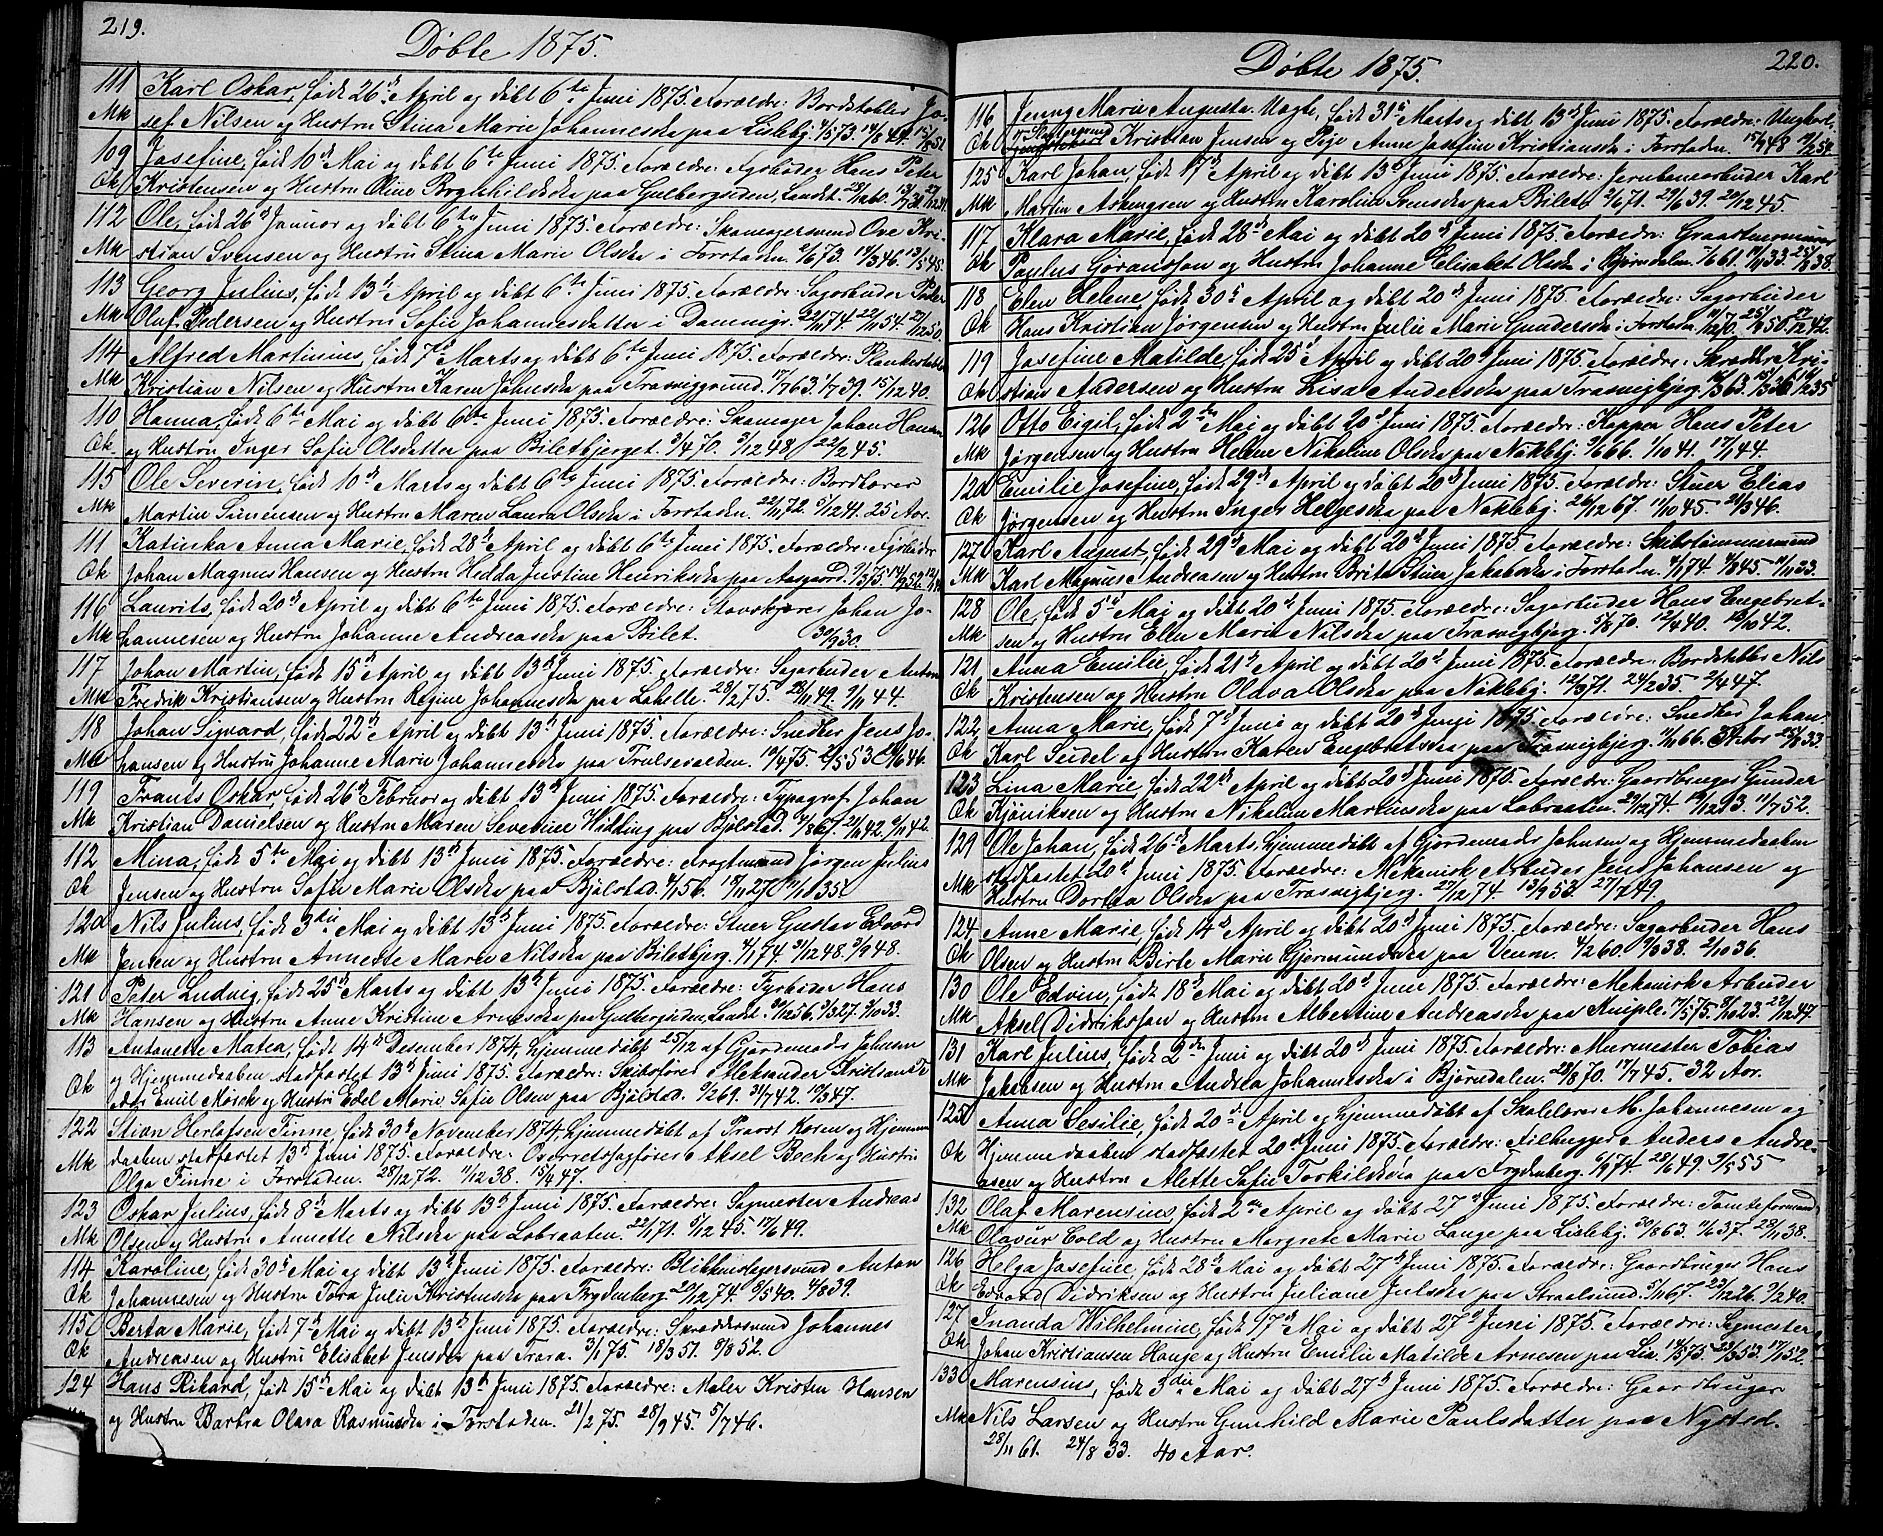 219.
Døbte 1875.
111 Karl Oskar, født 26de April og døbt 6te Juni 1875. Forældre: Bordstabler Jo-
Mk sef Nilsen og Hustru Stina Marie Johannesdtr paa Lisleby. 4/5 73.
109 Josefine, født 10de Mai og døbt 6te Juni 1875. Forældre: Fyrbøder Hans Peter
Qk Kristensen og Hustru Oline Bryhildsdtr paa Gulbergsiden, Landet.
112 Ole, født 26de Januar og døbt 6te Juni 1875. Forældre: Skomagersvend Ove Kri-
Mk stian Svensen og Hustru Stina Marie Olsdtr i Forstaden. 2/6 73. 14/3 46. 13/5 45.
113 Georg Julius, født 13de April og døbt 6te Juni 1875. Forældre: Sagarbeider Peder
Mk Oluf Pedersen og Hustru Sofie Johannesdatter i Damvigs. 22/11 74. 22/11 54. 27/12 50.
114 Alfred Martinius, født 7de Marts og døbt 6te Juni 1875. Forældre: Plankestabler
Mk Kristian Nilsen og Hustru Karen Johnsdtr paa Trosviggrund. 17/7 63. 1/7 39. 15/12 40.
110 Hanna, født 6te Mai og døbt 6te Juni 1875. Forældre: Skomager Johan Hansen
Qk og Hustru Inger Sofie Olsdatter paa Biletbjerget. 3/4 70. 3/12 48. 22/2 45.
115 Ole Severin, født 10de Marts og døbt 6te Juni 1875. Forældre: Bordbærer
Mk Martin Simensen og Hustru Maren Laura Olsdtr i Forstaden. 22/11 72. 5/12 41. 25 Aar.
111 Katinka Anna Marie, født 28de April og døbt 6te Juni 1875. Forældre: Fyrbøder
Qk Johan Magnus Hansen og Hustru Hedda Justine Henriksdtr paa Aasgaard.
116 Laurits, født 20de April og døbt 6te Juni 1875. Forældre: Stavskjærer Johan Jo-
Mk hannesen og Hustru Johanne Andreasdtr paa Bilet. 30/9 30.
117 Johan Martin, født 15de April og døbt 13de Juni 1875. Forældre: Sagarbeider Anton
Mk Fredrik Kristiansen og Hustru Regine Johannesdtr paa Lahelle. 28/2 75. 29/11 49. 9/11 44.
118 Johan Sigvard, født 22de April og døbt 13de Juni 1875. Forældre: Snedker Jens Jo-
Mk hansen og Hustru Johanne Marie Johannesdtr paa Trulserødden. 10/4 75. 2/5 53. 21/6 46.
119 Frants Oskar, født 26de Februar og døbt 13de Juni 1875. Forældre: Typograf Johan
Mk Kristian Danielsen og Hustru Maren Severine Widding paa Bjølstad. 4/8 67. 21/6 42. 9/11 42.
112 Mina, født 5te Mai og døbt 13de Juni 1875. Forældre: Fragtmand Jørgen Julius
Qk Jensen og Hustru Sofie Marie Olsdtr paa Bjølstad. 4/1 56. 18/11 27. 11/10 35.
120 Nils Julius, født 3die Mai og døbt 13de Juni 1875. Forældre: Stuer Gustav Edvard
Mk Jensen og Hustru Annette Marie Nilsdtr paa Biletbjerg. 4/1 74. 31/12 48. 3/9 48.
121 Peter Ludvig, født 25de Marts og døbt 13de Juni 1875. Forældre: Fyrbøder Hans
Mk Hansen og Hustru Anne Kristine Arnesdtr paa Gulbergsiden, Landet. 30/12 56. 3/3 27. 3/10 33.
113 Antonette Matea, født 14de Desember 1874, hjemmedøbt 25/12 af Gjordemoder Johnsen
og Hjemmedaaben stadfæstet 13de Juni 1875. Forældre: Skibsfører Aleksander Kristian
Qk Emil Mösch og Hustru Edel Marie Sofie Olsen paa Bjølstad. 9/2 69. 31/7 42. 10/3 47.
122 Stian Herlofsen Finne, født 30de November 1874, hjemmedøbt af Provst Koren og Hjemme
daaben stadfæstet 13de Juni 1875. Forældre: Overretssagfører Aksel Bech og Hustru
Mk Olga Finne i Forstaden. 28/12 72. 11/12 38. 15/4 47.
123 Oskar Julius, født 8de Marts og døbt 13de Juni 1875. Forældre: Sagmester Andreas
Mk Olsen og Hustru Annette Nilsdtr paa Løbraaten. 22/1 71. 5/12 45. 17/6 49.
114 Karoline, født 30te Mai og døbt 13de Juni 1875. Forældre: Blikkenslagersvend Anton
Qk Johannesen og Hustru Tora Julie Kristensdtr paa Frydenberg. 20/12 74. 8/5 40. 4/8 39.
115 Berta Marie, født 7de Mai og døbt 13de Juni 1875. Forældre: Skræddersvend Johannes
Qk Andreasen og Hustru Elisabet Jensdtr paa Trara. 3/1 75. 18/3 51. 9/8 52.
124 Hans Rikard, født 15de Mai og døbt 13de Juni 1875. Forældre: Maler Kristen Hansen
og Hustru Barbra Olava Rasmusdtr i Forstaden. 21/2 75. 28/9 45. 5/7 46.
220.
Døbte 1875.
116 Jenny Marie Augusta Vagle, født 31te Marts og døbt 13de Juni 1875. Forældre: Ungkarl
Qk Kristian Jensen og Pige Anne Josefine Kristiansdtr i Forstaden.
125 Karl Johan, født 17de April og døbt 13de Juni 1875. Forældre: Jernbanearbeider Karl
Mk Martin Askengsen og Hustru Karoline Svensdtr paa Bilet. 2/6 71. 29/6 39. 20/12 45.
117 Klara Marie, født 28de Mai og døbt 20de Juni 1875. Forældre: Graastensmurer
Qk Paulus Gøransson og Hustru Johanne Elisabet Olsdtr i Bjørndalen.
118 Elen Helene, født 30te April og døbt 20de Juni 1875. Forældre: Sagarbeider
Qk Hans Kristian Jørgensen og Hustru Julie Marie Gundersdtr i Forstaden.
119 Josefine Matilde, født 25de April og døbt 20de Juni 1875. Forældre: Skrædder Kri-
Qk stian Andersen og Hustru Lisa Andersdtr paa Trosvigbjerg.
126 Otto Eigil, født 2den Mai og døbt 20de Juni 1875. Forældre: Kopper Hans Peter
Mk Jørgensen og Hustru Helene Nikoline Olsdtr paa Nøkleby. 9/6 66. 1/10 41. 17/1 44.
120 Emilie Josefine, født 29de April og døbt 20de Juni 1875. Forældre: Stuer Elias
Qk Jørgensen og Hustru Inger Helgesdtr paa Nøkleby. 26/12 67. 11/10 45. 21/3 46.
127 Karl August, født 29de Mai og døbt 20de Juni 1875. Forældre: Skibstømmermand
Mk Karl Magnus Andreasen og Hustru Brita Stina Jakobsdtr i Forstaden. 4/1 74. 4/8 45. 11/11 33.
128 Ole, født 5te Mai og døbt 20de Juni 1875. Forældre: Sagarbeider Hans Engebret-
Mk sen og Hustru Ellen Marie Nilsdtr paa Trosvigbjerg. 5/8 70. 12/4 40. 10/10 42.
121 Anna Emilie, født 21de April og døbt 20de Juni 1875. Forældre: Bordstabler Nils
Qk Kristensen og Hustru Oldva Olsdtr paa Nøkleby. 12/3 71. 24/2 35. 2/4 47.
122 Anna Marie, født 7de Juni og døbt 20de Juni 1875. Forældre: Snedker Johan
Qk Karl Seidel og Hustru Karen Engebretsdtr paa Trosvigbjerg. 11/11 66.
123 Lina Marie, født 22de April og døbt 20de Juni 1875. Forældre: Gaardbruger Gunder
Qk Kjøniksen og Hustru Nikoline Martinsdtr paa Løbraaten. 27/12 74. 10/12 13. 11/7 52.
129 Ole Johan, født 26de Marts, hjemmedøbt af Gjordemoder Johnsen og Hjemmedaaben
stadfæstet 20de Juni 1875. Forældre: Mekanisk Arbeider Jens Johansen og
Mk Hustru Dortea Olsdtr paa Trosvigbjerg. 27/12 74. 13/9 53. 27/7 49.
124 Anne Marie, født 14de April og døbt 20de Juni 1875. Forældre: Sagarbeider Hans
Qk Olsen og Hustru Birte Marie Gjermundsdtr paa Veum. 4/2 60. 9/9 38. 2/10 36.
130 Ole Edvin, født 18de Mai og døbt 20de Juni 1875. Forældre: Mekanisk Arbeider
Mk Aksel Didriksson og Hustru Albertine Andreasdtr paa Kniple. 17/5 75. 8/10 23. 22/12 47.
131 Karl Julius, født 2den Juni og døbt 20de Juni 1875. Forældre: Murmester Tobias
Mk Jakobsen og Hustru Andrea Johannesdtr i Bjørndalen. 29/8 70. 17/7 45. 32 Aar.
125 Anna Sesilie, født 20de April og hjemmedøbt af Skolelærer M. Johannesen og
Qk Hjemmedaaben stadfæstet 20de Juni 1875. Forældre: Filhugger Anders Andre-
asen og Hustru Alette Sofie Torkildsdtr paa Frydenberg. 6/9 74. 28/6 49. 9/5 55
132 Olaf Marensius, født 2den April og døbt 27de Juni 1875. Forældre: Tomteformand
Mk Olavur Eold og Hustru Margrete Marie Lange paa Lisleby. 20/8 63. 11/6 37. 28/11 38.
126 Helga Josefine, født 28de Mai og døbt 27de Juni 1875. Forældre: Gaardbruger Hans
Qk Edvard Didriksen og Hustru Juliane Julsdtr paa Stralsund. 5/11 67. 23/12 26. 9/2 40.
127 Inanda Wilhelmine, født 17de Mai og døbt 27de Juni 1875. Forældre: Sagmester
Qk Johan Kristiansen Hauge og Hustru Emilie Matilde Arnesen paa Lie.
133 Marensius, født 3die Mai og døbt 27de Juni 1875. Forældre: Gaardbruger
Mk Nils Larsen og Hustru Gunhild Marie Paulsdatter paa Nysted.
28/11 61. 24/8 33. 40 Aar.